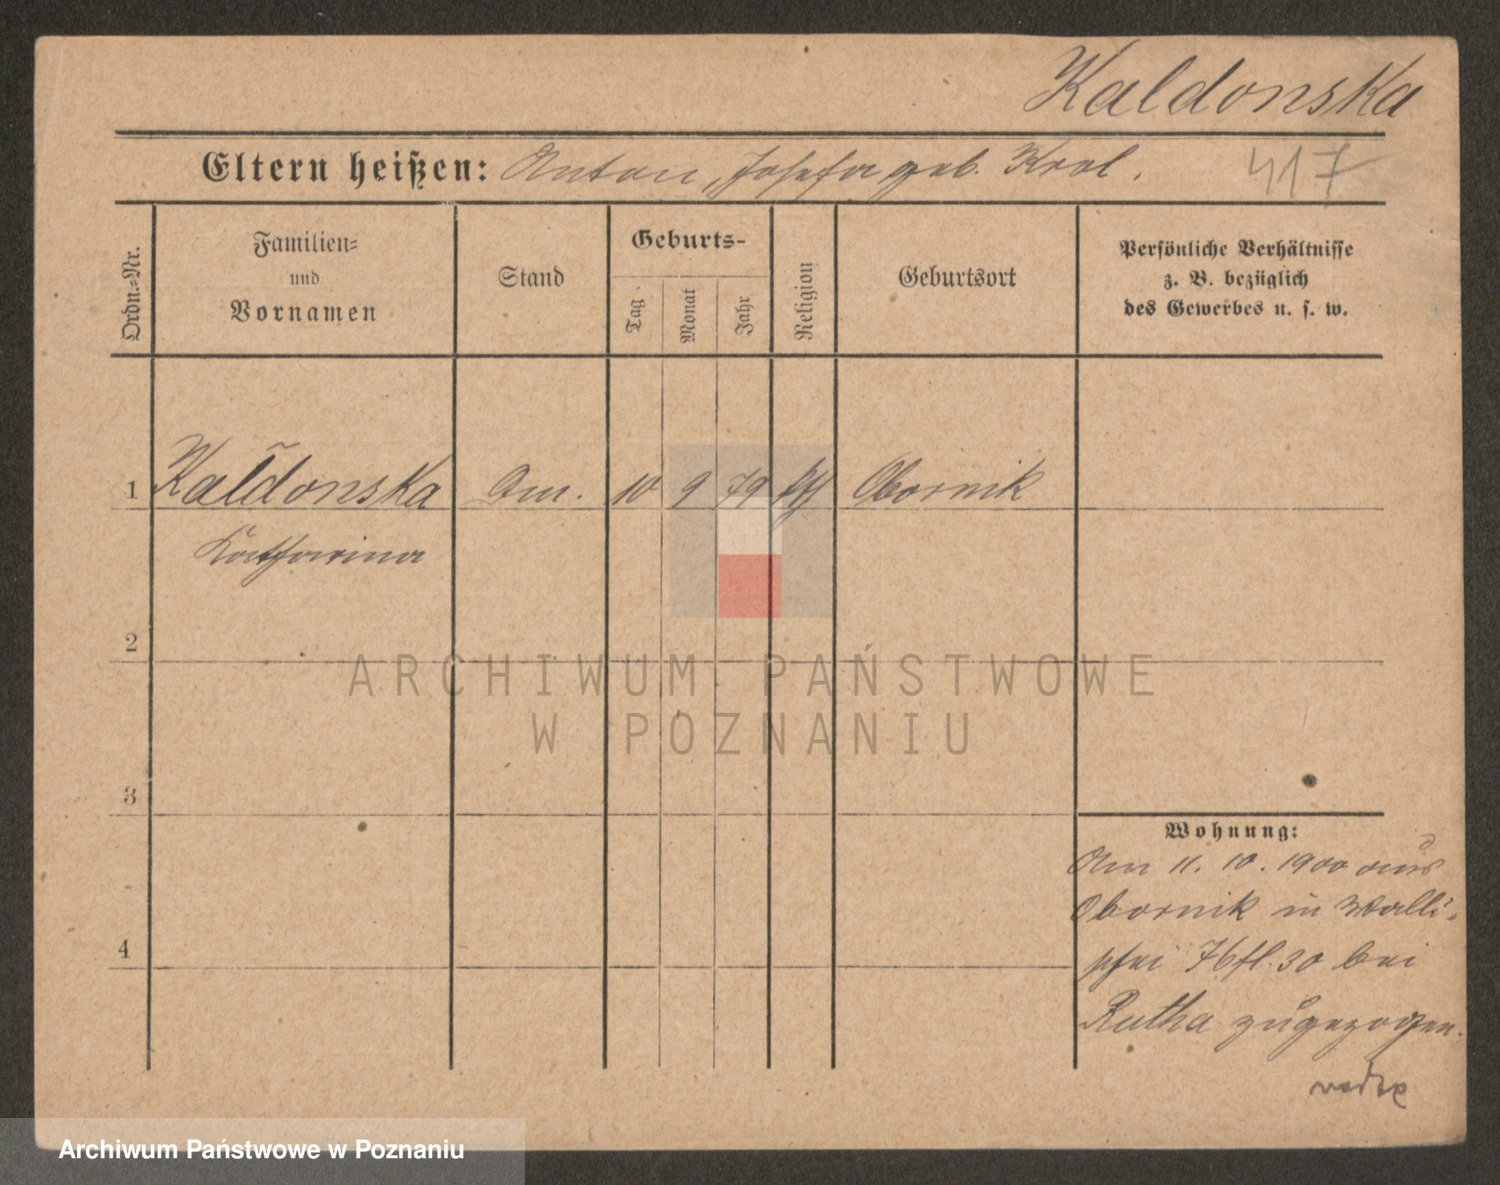 Kaldonska
Eltern heißen: Anton, Josefa geb. Krol.
417
Ordn.=Nr.
Familien=
und
Vornamen
Stand
Geburts-
Tag
Monat
Jahr
Religion
Geburtsort
Persönliche Verhältnisse
z. B. bezüglich
des Gewerbes u. s. w.
1 Kaldonska 10 9 79 Obornik
Katharina
2
ARCHIWUM PAŃSTWOWE
W POZNANIU
3
Wohnung:
Am 11. 10. 1900 aus
Obornik in Walli-
schei 76 30 bei
4
Rutha zugezogen.
Archiwum Państwowe w Poznaniu